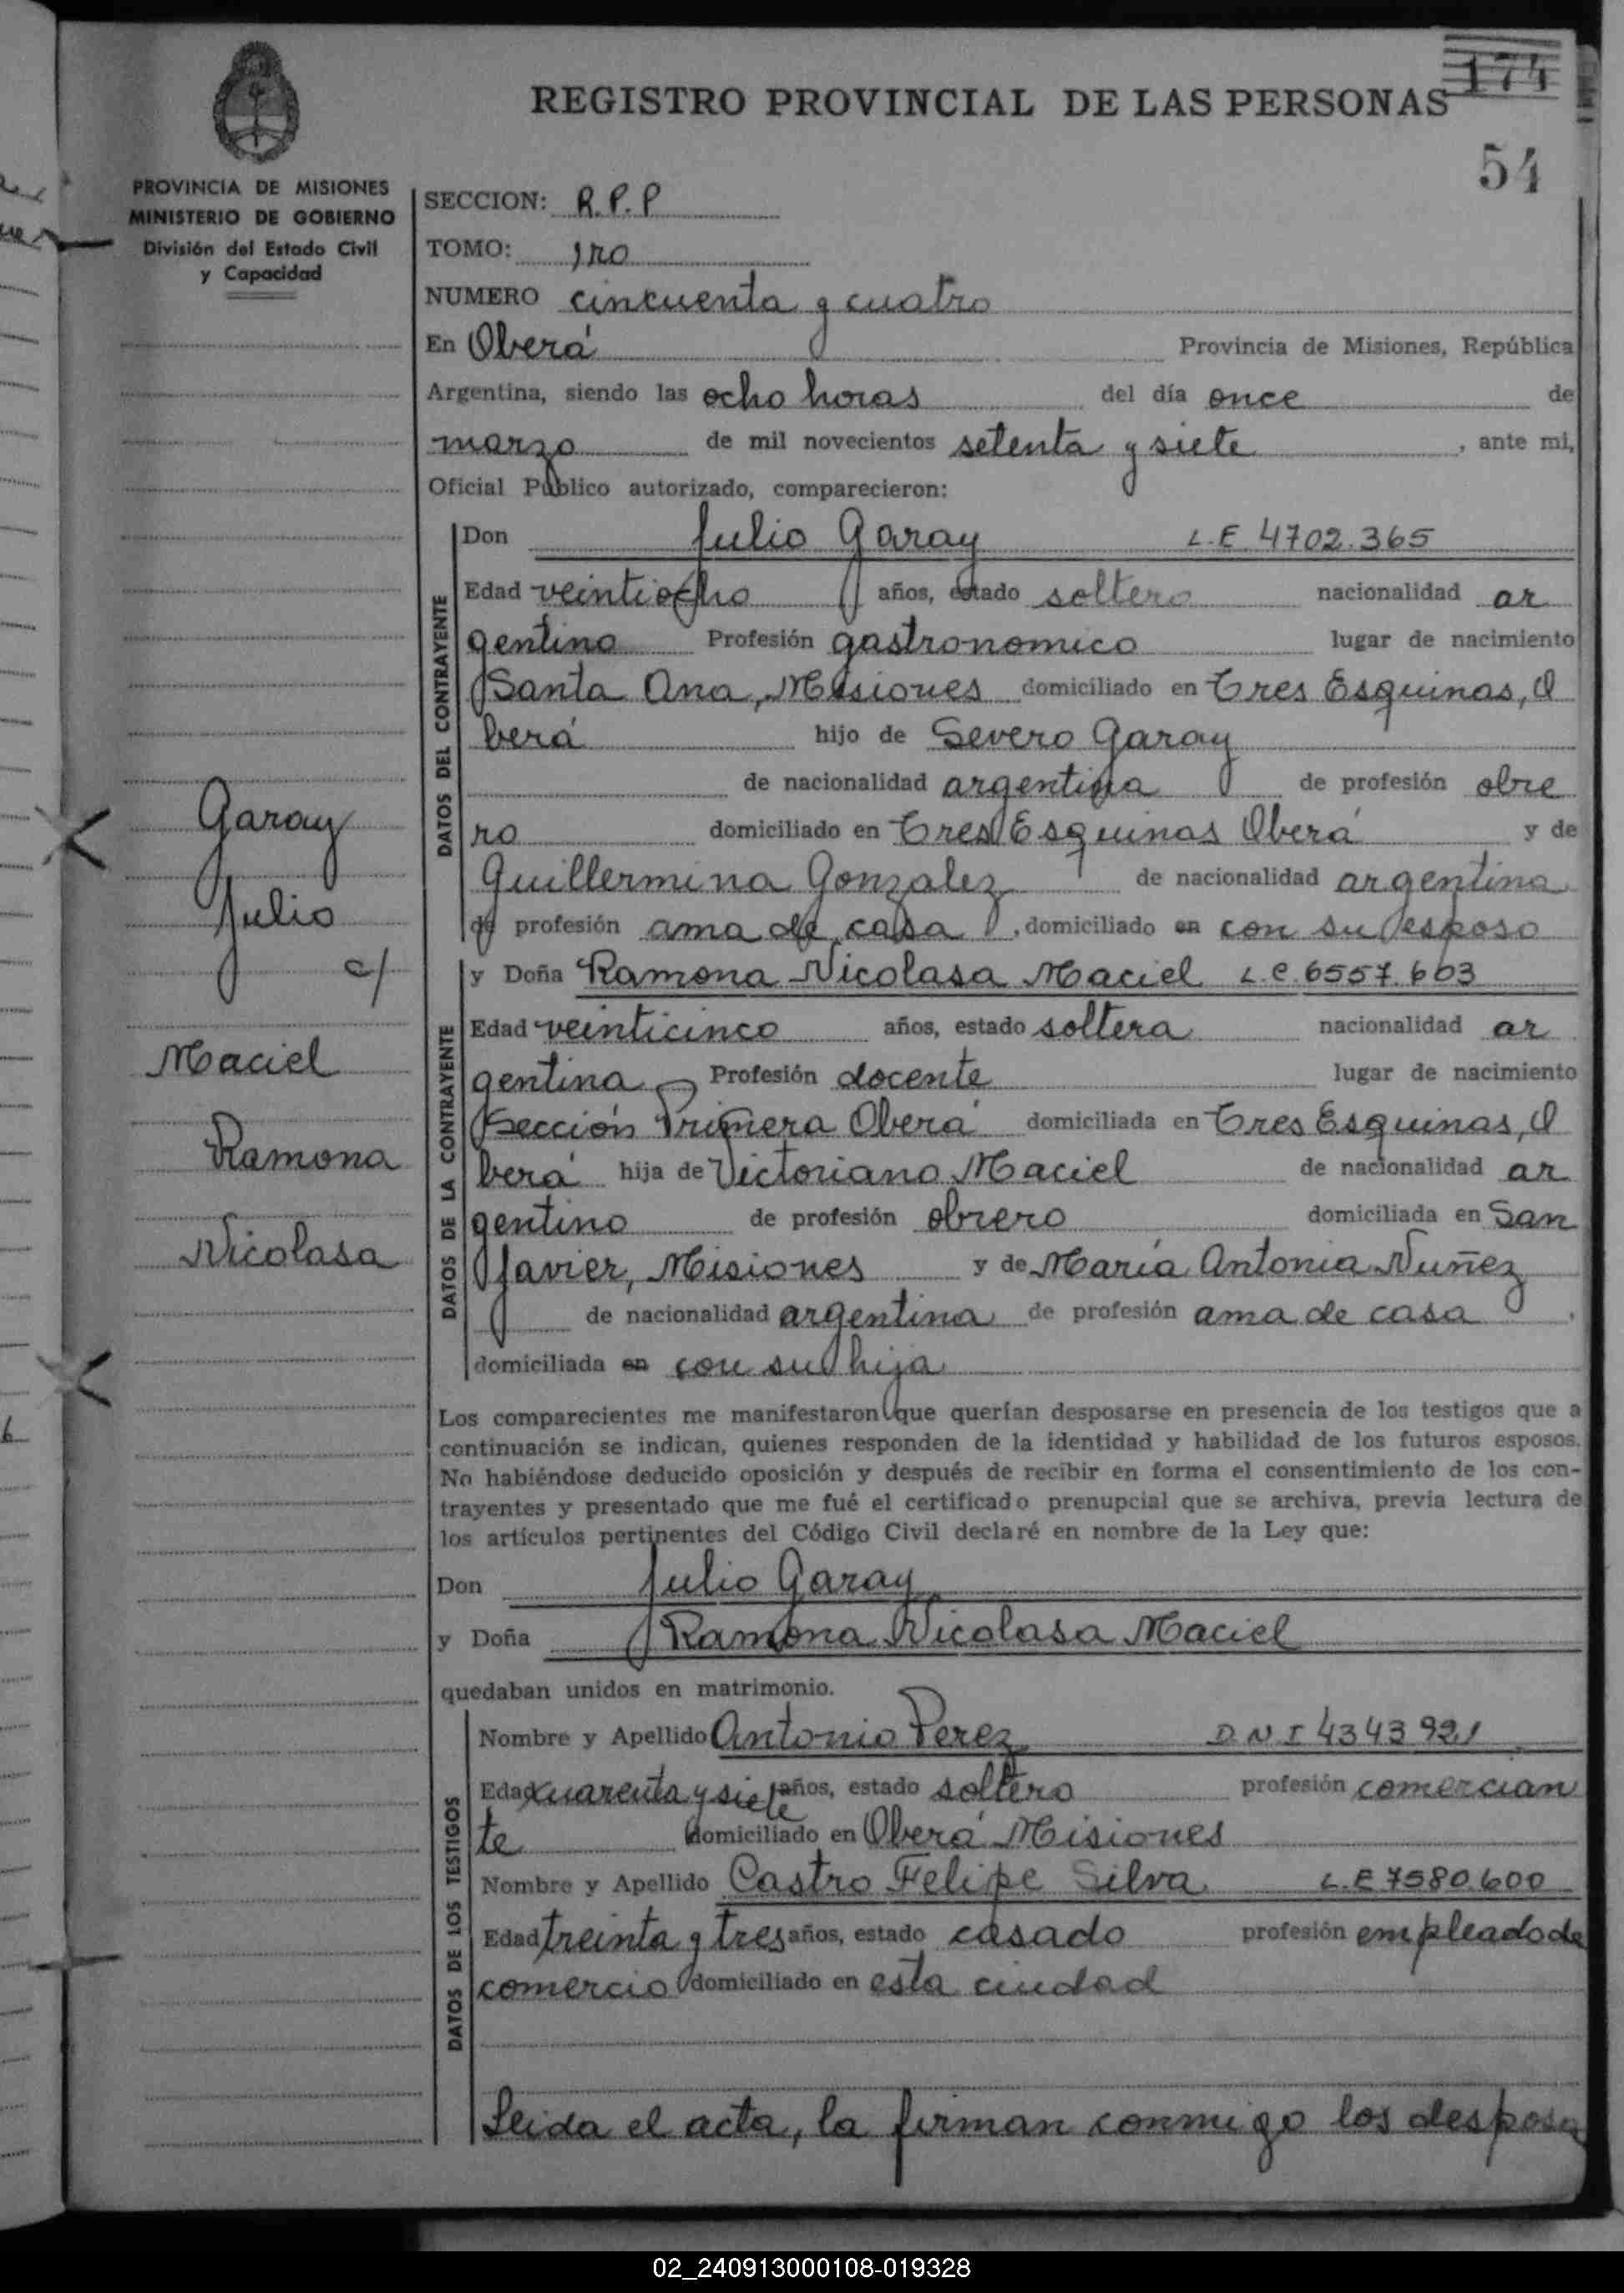 174
REGISTRO PROVINCIAL DE LAS PERSONAS
54
PROVINCIA DE MISIONES
MINISTERIO DE GOBIERNO
División del Estado Civil
y Capacidad
SECCION: R.P.P
TOMO: 1ro
NUMERO cincuenta y cuatro
En Oberá Provincia de Misiones, República
Argentina, siendo las ocho horas del día once de
marzo de mil novecientos setenta y siete, ante mi,
Oficial Público autorizado, comparecieron:
DATOS DEL CONTRAYENTE
Don Julio Garay L.E. 4702.365
Edad veintiocho años, estado soltero nacionalidad ar
gentino Profesión gastronomico lugar de nacimiento
Santa Ana, Misiones domiciliado en Tres Esquinas, O
berá hijo de Severo Garay
de nacionalidad argentina de profesión obre
ro domiciliado en Tres Esquinas Oberá y de
Guillermina Gonzalez de nacionalidad argentina
de profesión ama de casa, domiciliado en con su esposo
Garay
Julio
c/
Maciel
Ramona
Nicolasa
DATOS DE LA CONTRAYENTE
y Doña Ramona Nicolasa Maciel L.C. 6557.603
Edad veinticinco años, estado soltera nacionalidad ar
gentina Profesión docente lugar de nacimiento
Sección Primera Oberá domiciliada en Tres Esquinas, O
berá hija de Victoriano Maciel de nacionalidad ar
gentino de profesión obrero domiciliada en San
Javier, Misiones y de María Antonia Nuñez
de nacionalidad argentina de profesión ama de casa
domiciliada en con su hija
Los comparecientes me manifestaron que querían desposarse en presencia de los testigos que a
continuación se indican, quienes responden de la identidad y habilidad de los futuros esposos.
No habiéndose deducido oposición y después de recibir en forma el consentimiento de los con-
trayentes y presentado que me fué el certificado prenupcial que se archiva, previa lectura de
los artículos pertinentes del Código Civil declaré en nombre de la Ley que:
Don Julio Garay
y Doña Ramona Nicolasa Maciel
quedaban unidos en matrimonio.
DATOS DE LOS TESTIGOS
Nombre y Apellido Antonio Perez D.N.I 4343921
Edad cuarenta y siete años, estado soltero profesión comercian
te domiciliado en Oberá Misiones
Nombre y Apellido Castro Felipe Silva L.E 7580.600
Edad treinta y tres años, estado casado profesión empleado de
comercio domiciliado en esta ciudad
Leida el acta, la firman conmigo los desposa
02_240913000108-019328